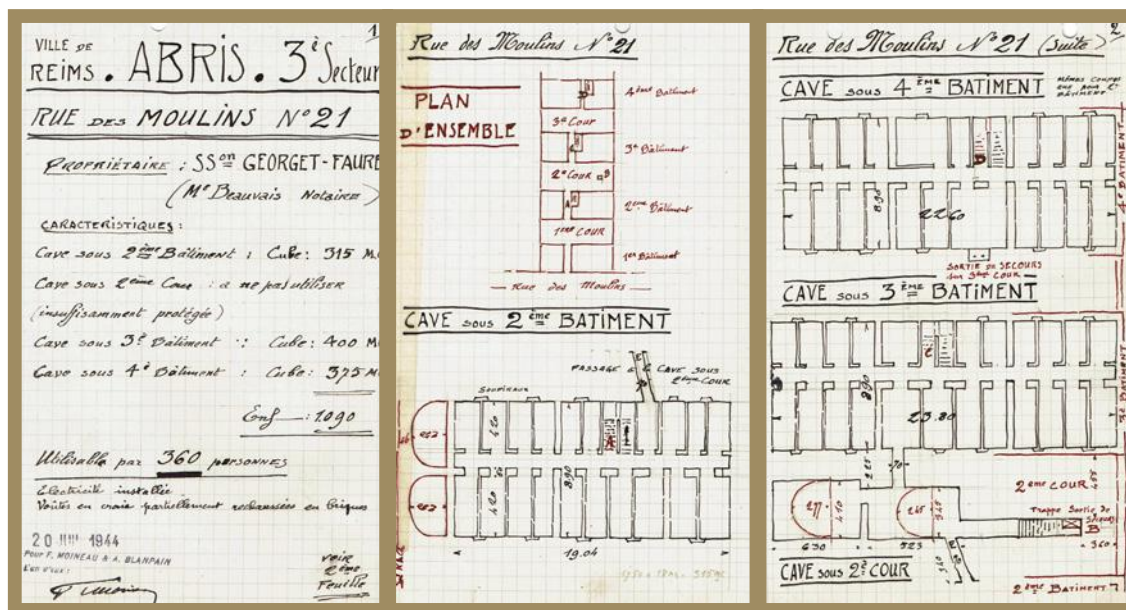 1
VILLE DE
REIMS. ABRIS. 3è Secteur
RUE DES MOULINS N°21
PROPRIÉTAIRE : SSon GEORGET-FAURE
(Me Beauvais Notaire)
CARACTERISTIQUES :
Cave sous 2ème Bâtiment : Cube: 315 M
Cave sous 2ème Cour : à ne pas utiliser
(insuffisamment protégée)
Cave sous 3è Bâtiment : Cube: 400 M
Cave sous 4è Bâtiment : Cube: 375 M
Ens : 1.090
Utilisable par 360 personnes
Electricité installée
Voûtes en craie partiellement rechaussées en briques
20 JUIN 1944
Pour F. MOINEAU & A. BLANPAIN
L'un d'eux :
voir
2ème
Feuille
Rue des Moulins N° 21
PLAN
D'ENSEMBLE
4ème Bâtiment
D
3è Cour
3è Bâtiment
C
2è Cour B
2ème Bâtiment
A
1ère COUR
1er Bâtiment
Rue des Moulins
CAVE sous 2ème BATIMENT
PASSAGE à la CAVE SOUS
2ème COUR
SOUPIRAUX
4.20
A
8.90
4.20
19.04
2
Rue des Moulins N° 21 (suite)
CAVE sous 4ÈME BATIMENT
MÊMES COUPES
QUE POUR LE
BÂTIMENT
D
8.90
22.60
4è BATIMENT
SORTIE DE SECOURS
sur 3ème COUR
CAVE sous 3ÈME BATIMENT
C
8.90
23.80
3è BATIMENT
2.25
70
2ème COUR
4.55
277
4.10
265
Trappe Sortie de
Secours
B
6.30
5.23
3.60
CAVE sous 2è COUR
2ème BATIMENT